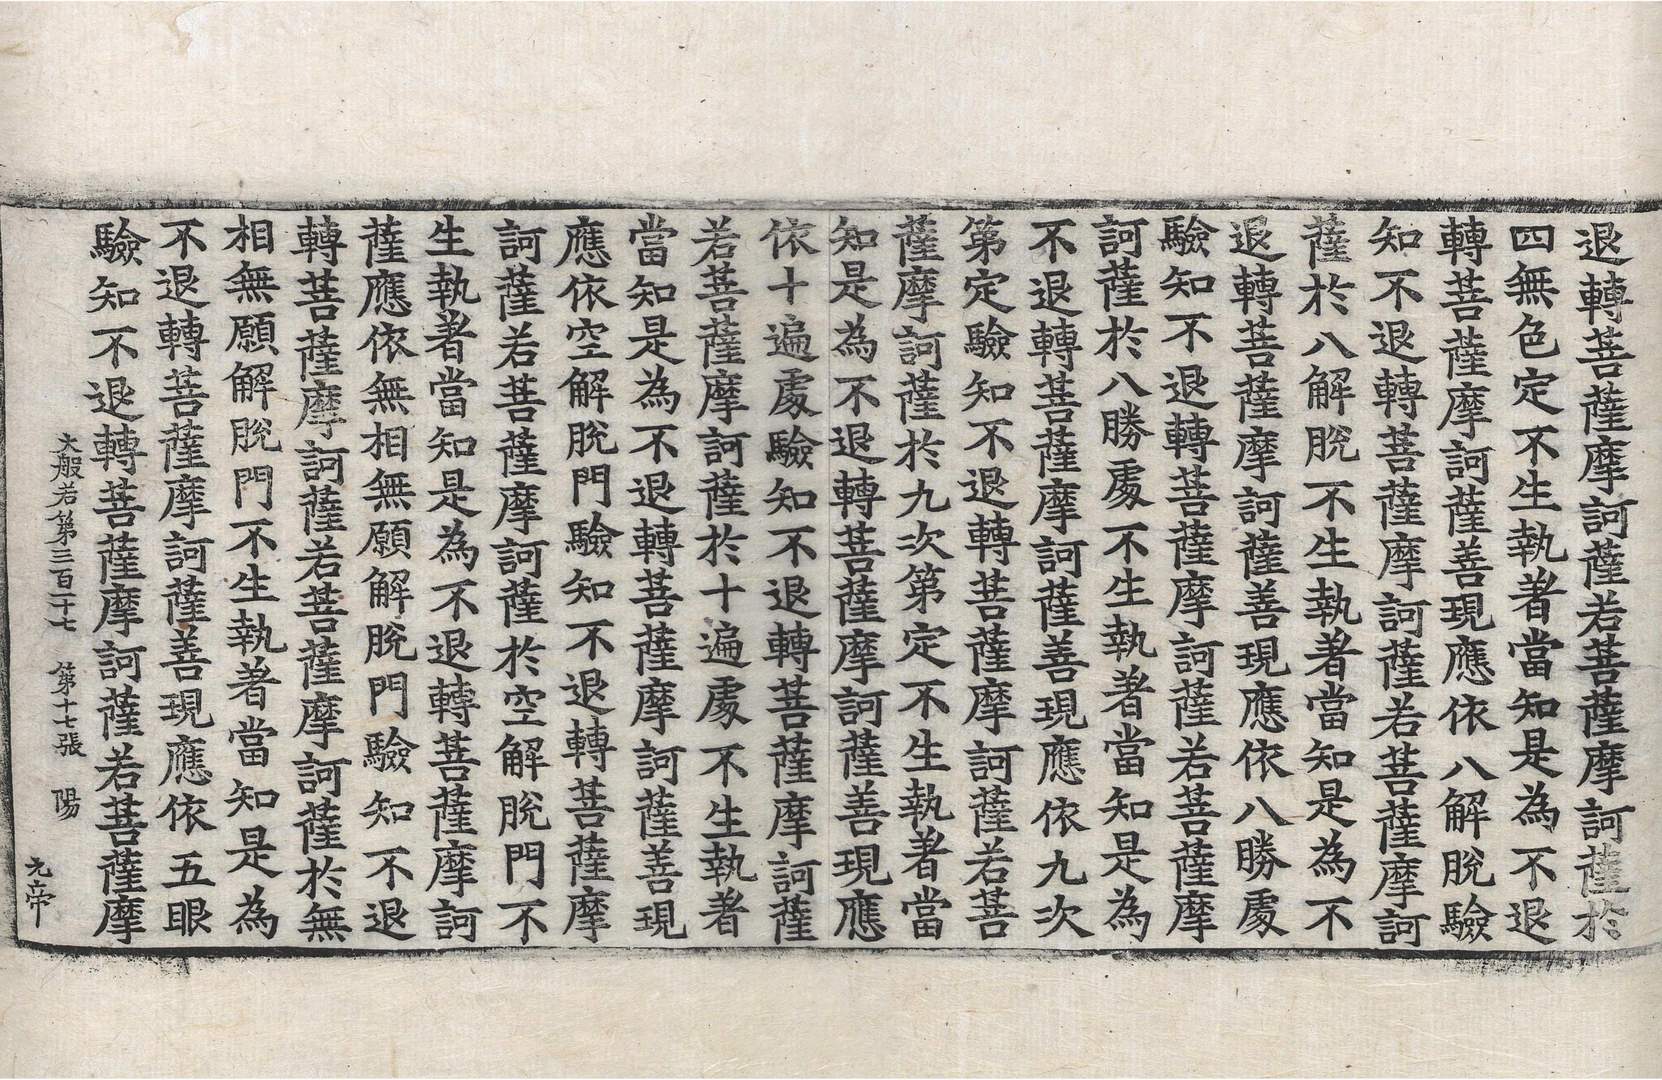 退轉菩薩摩訶薩若菩薩摩訶薩於
四無色定不生執著當知是為不退
轉菩薩摩訶薩善現應依八解脫驗
知不退轉菩薩摩訶薩若菩薩摩訶
薩於八解脫不生執著當知是為不
退轉菩薩摩訶薩善現應依八勝處
驗知不退轉菩薩摩訶薩若菩薩摩
訶薩於八勝處不生執著當知是為
不退轉菩薩摩訶薩善現應依九次
第定驗知不退轉菩薩摩訶薩若菩
薩摩訶薩於九次第定不生執著當
知是為不退轉菩薩摩訶薩善現應
依十遍處驗知不退轉菩薩摩訶薩
若菩薩摩訶薩於十遍處不生執著
當知是為不退轉菩薩摩訶薩善現
應依空解脫門驗知不退轉菩薩摩
訶薩若菩薩摩訶薩於空解脫門不
生執著當知是為不退轉菩薩摩訶
薩應依無相無願解脫門驗知不退
轉菩薩摩訶薩若菩薩摩訶薩於無
相無願解脫門不生執著當知是為
不退轉菩薩摩訶薩善現應依五眼
驗知不退轉菩薩摩訶薩若菩薩摩
大般若第三百二十七 第十七張 陽
元帝